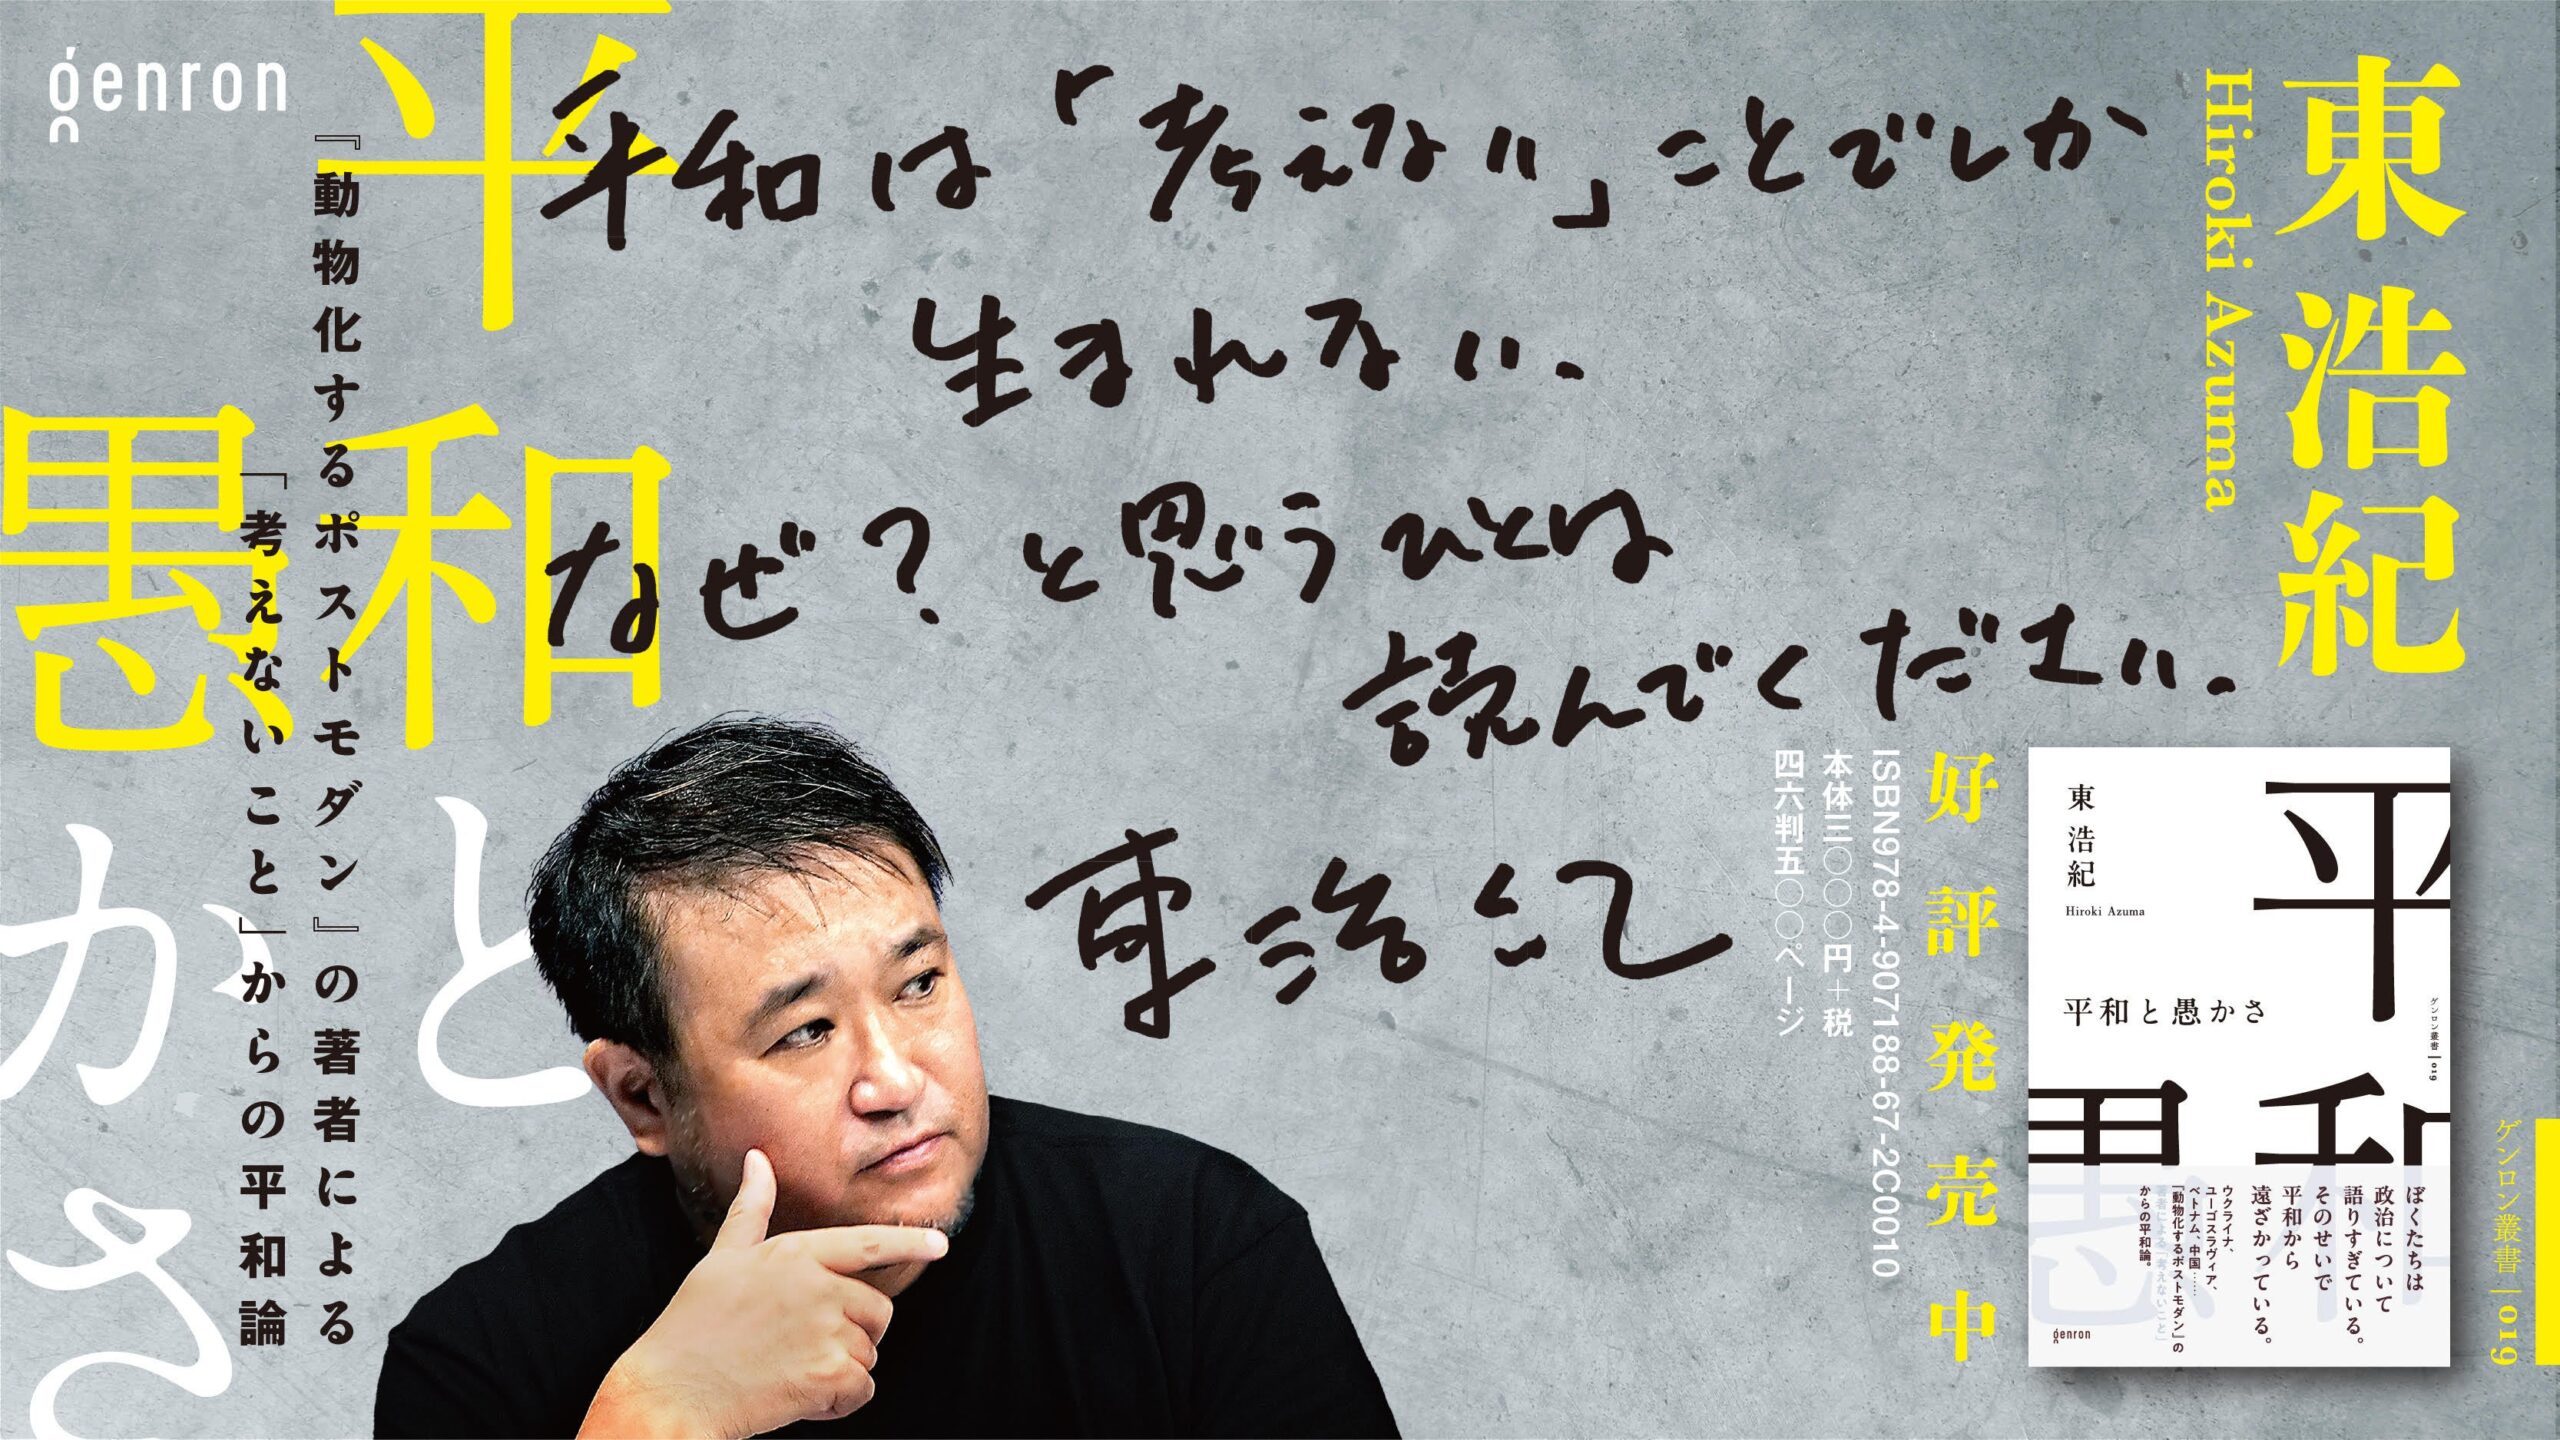 genron
平和と
愚かさ
『動物化するポストモダン』の著者による
「考えないこと」からの平和論
平和は「考えない」ことでしか
生まれない.
なぜ?と思うひとは
読んでください.
東浩紀
東浩紀
Hiroki Azuma
好評発売中
ISBN978-4-907188-67-2C0010
本体三〇〇〇円+税
四六判五〇〇ページ
東浩紀
Hiroki Azuma
平和
愚
平和と愚かさ
ゲンロン叢書|019
ぼくたちは
政治について
語りすぎている。
そのせいで
平和から
遠ざかっている。
ウクライナ、
ユーゴスラヴィア、
ベトナム、中国……
『動物化するポストモダン』の
著者による「考えないこと」
からの平和論。
genron
ゲンロン叢書|019